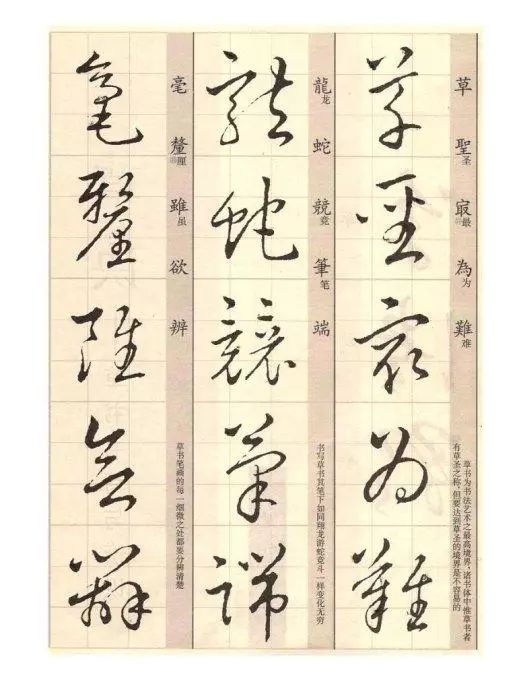 草聖圣㝡最為为難难
草书为书法艺术之最高境界,诸书体中惟草书者
有草圣之称,但要达到草圣的境界是不容易的
草聖㝡為難
龍龙蛇競竞筆笔端
书写草书其笔下如同翔龙游蛇竞斗一样变化无穷
龍蛇競筆端
毫釐厘雖虽欲辨
草书笔画的每一细微之处都要分辨清楚
毫釐雖欲辨